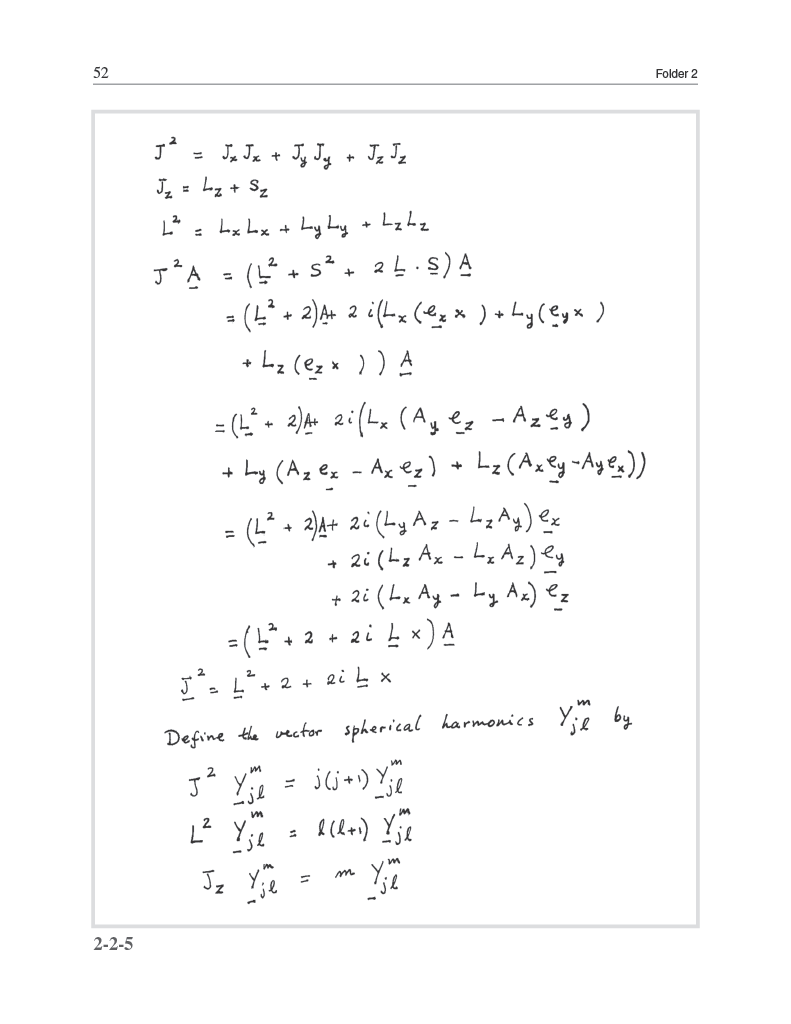 52 Folder 2
J² = JₓJₓ + J_yJ_y + J_zJ_z
J_z = L_z + S_z
L² = LₓLₓ + L_yL_y + L_zL_z
J²A = (L² + S² + 2 L · S) A
= (L² + 2)A + 2 i(Lₓ(eₓ × ) + L_y(e_y × )
+ L_z (e_z × ) ) A
= (L² + 2)A + 2i(Lₓ (A_y e_z − A_z e_y)
+ L_y (A_z eₓ − Aₓ e_z) + L_z (Aₓe_y − A_yeₓ))
= (L² + 2)A + 2i(L_y A_z − L_z A_y) eₓ
+ 2i (L_z Aₓ − Lₓ A_z) e_y
+ 2i (Lₓ A_y − L_y Aₓ) e_z
= (L² + 2 + 2i L ×) A
J² = L² + 2 + 2i L ×
Define the vector spherical harmonics Y_{jℓ}^m by
J² Y_{jℓ}^m = j(j+1) Y_{jℓ}^m
L² Y_{jℓ}^m = ℓ(ℓ+1) Y_{jℓ}^m
J_z Y_{jℓ}^m = m Y_{jℓ}^m
2-2-5